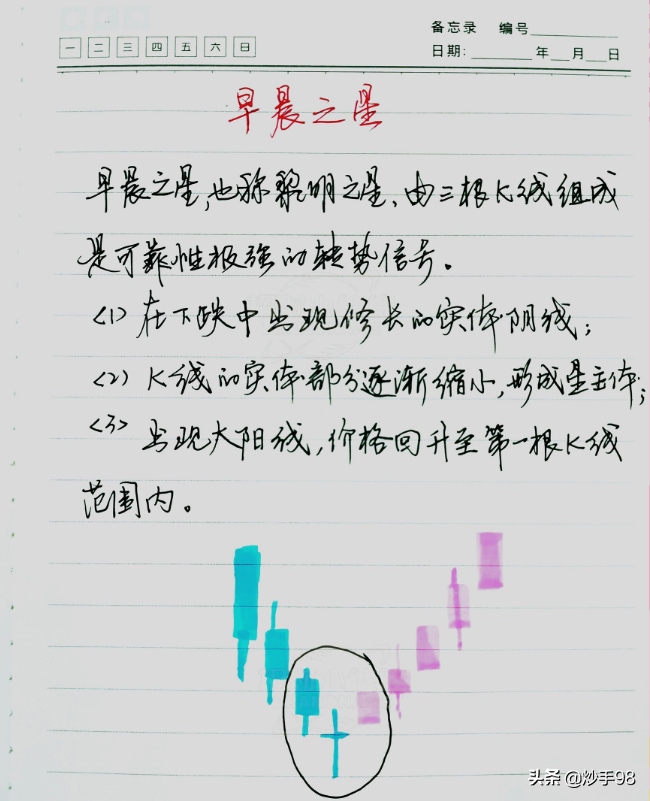 备忘录 编号
一 二 三 四 五 六 日
日期: 年 月 日
早晨之星
早晨之星,也称黎明之星、由三根K线组成
是可靠性极强的转势信号。
<1> 在下跌中出现修长的实体阴线;
<2> K线的实体部分逐渐缩小,形成星主体;
<3> 出现大阳线,价格回升至第一根K线
范围内。
头条 @炒手98